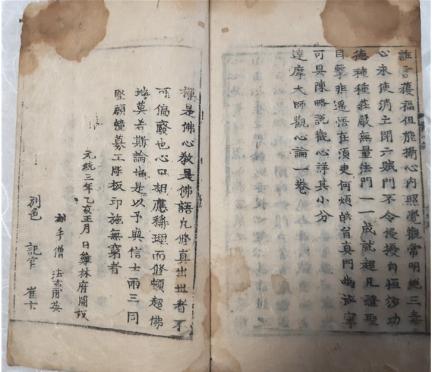 誰言獲福但能攝心內照覺觀常明絕三毒
心永使消亡閉六賊門不令侵擾自恒沙功
德種種莊嚴無量法門一一成就超凡證聖
目擊非遙悟在須臾何煩皓首真門幽秘寧
可具陳略說觀心詳其小分
達摩大師觀心論一卷
禪是佛心教是佛語凡修真出世者不
可偏廢也心口相應稱理而修頓超佛
地莫若斯論據是以予與信士兩三同
堅願轉募工彫板印施無窮者
元統三年乙亥正月日雞林府開板
刻手僧法
別色 記官 崔